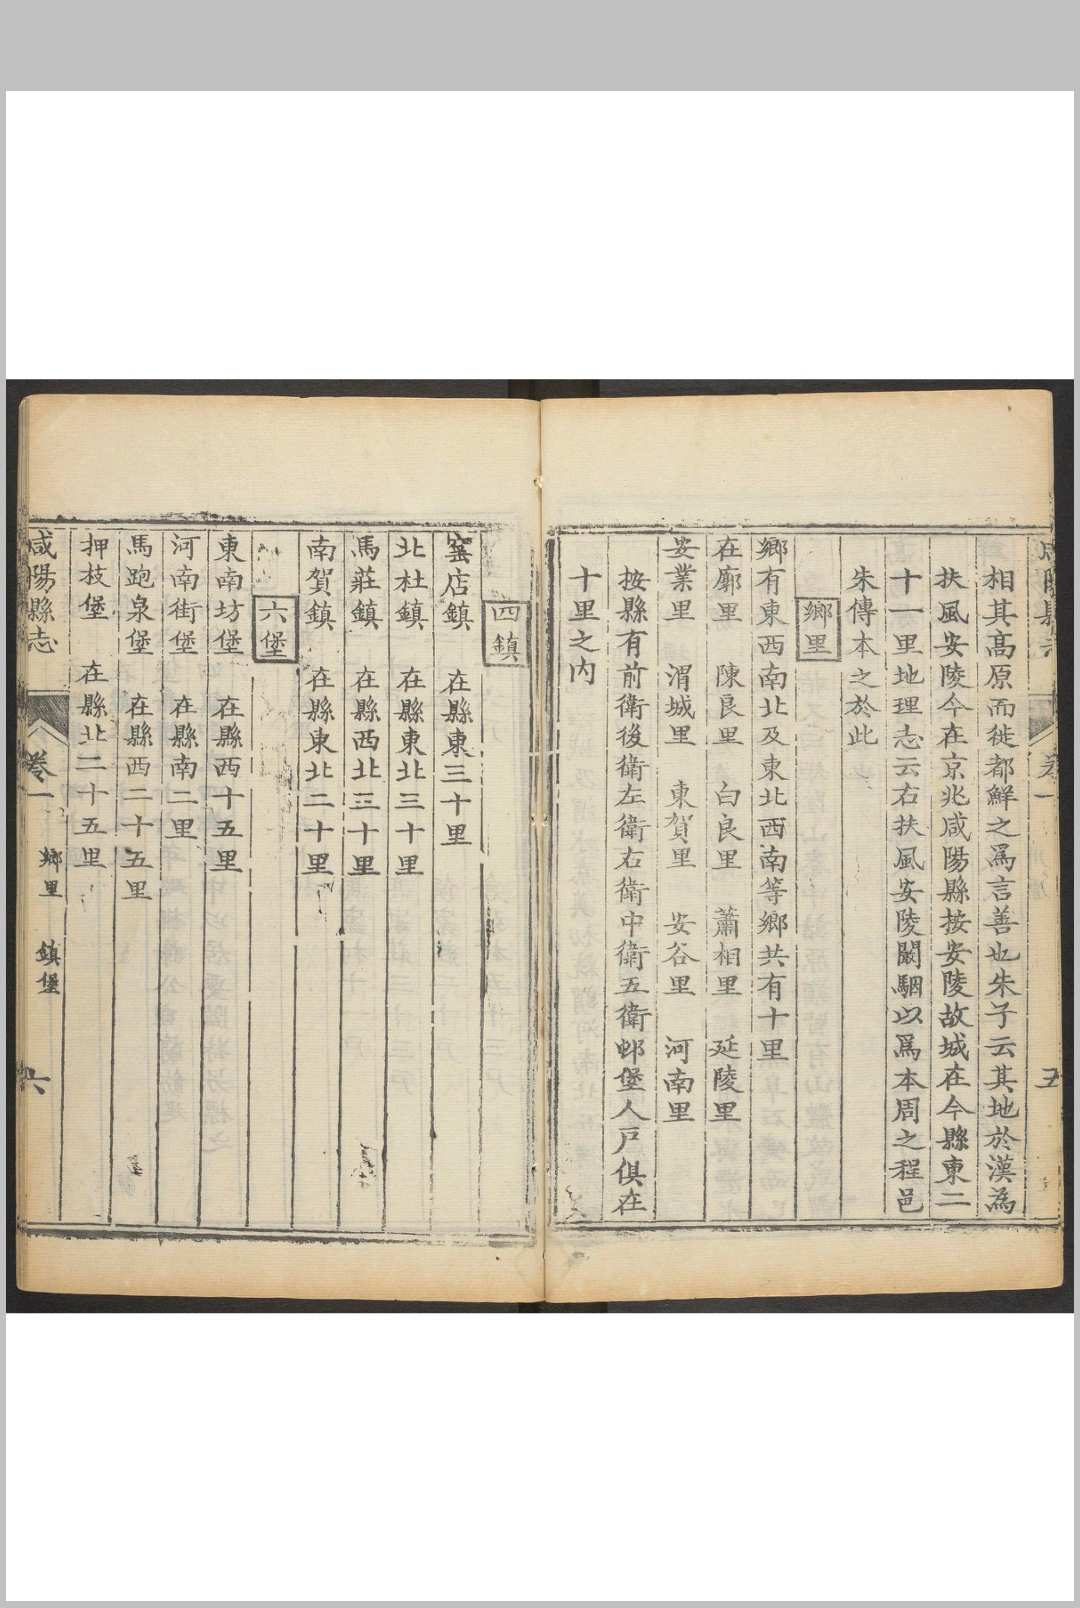 咸陽縣志
卷一
五
相其高原而徙都鮮之爲言善也朱子云其地於漢為
扶風安陵今在京兆咸陽縣按安陵故城在今縣東二
十一里地理志云右扶風安陵闞駰以爲本周之程邑
朱傳本之於此
鄉里
鄉有東西南北及東北西南等鄉共有十里
在廓里 陳良里 白良里 蕭相里 延陵里
安業里 渭城里 東賀里 安谷里 河南里
按縣有前衛後衛左衛右衛中衛五衛邮堡人戸俱在
十里之内
四鎮
窰店鎮 在縣東三十里
北杜鎮 在縣東北三十里
馬莊鎮 在縣西北三十里
南賀鎮 在縣東北二十里
六堡
東南坊堡 在縣西十五里
河南街堡 在縣南二里
馬跑泉堡 在縣西二十五里
押枝堡 在縣北二十五里
咸陽縣志
卷一
鄉里 鎮堡
六